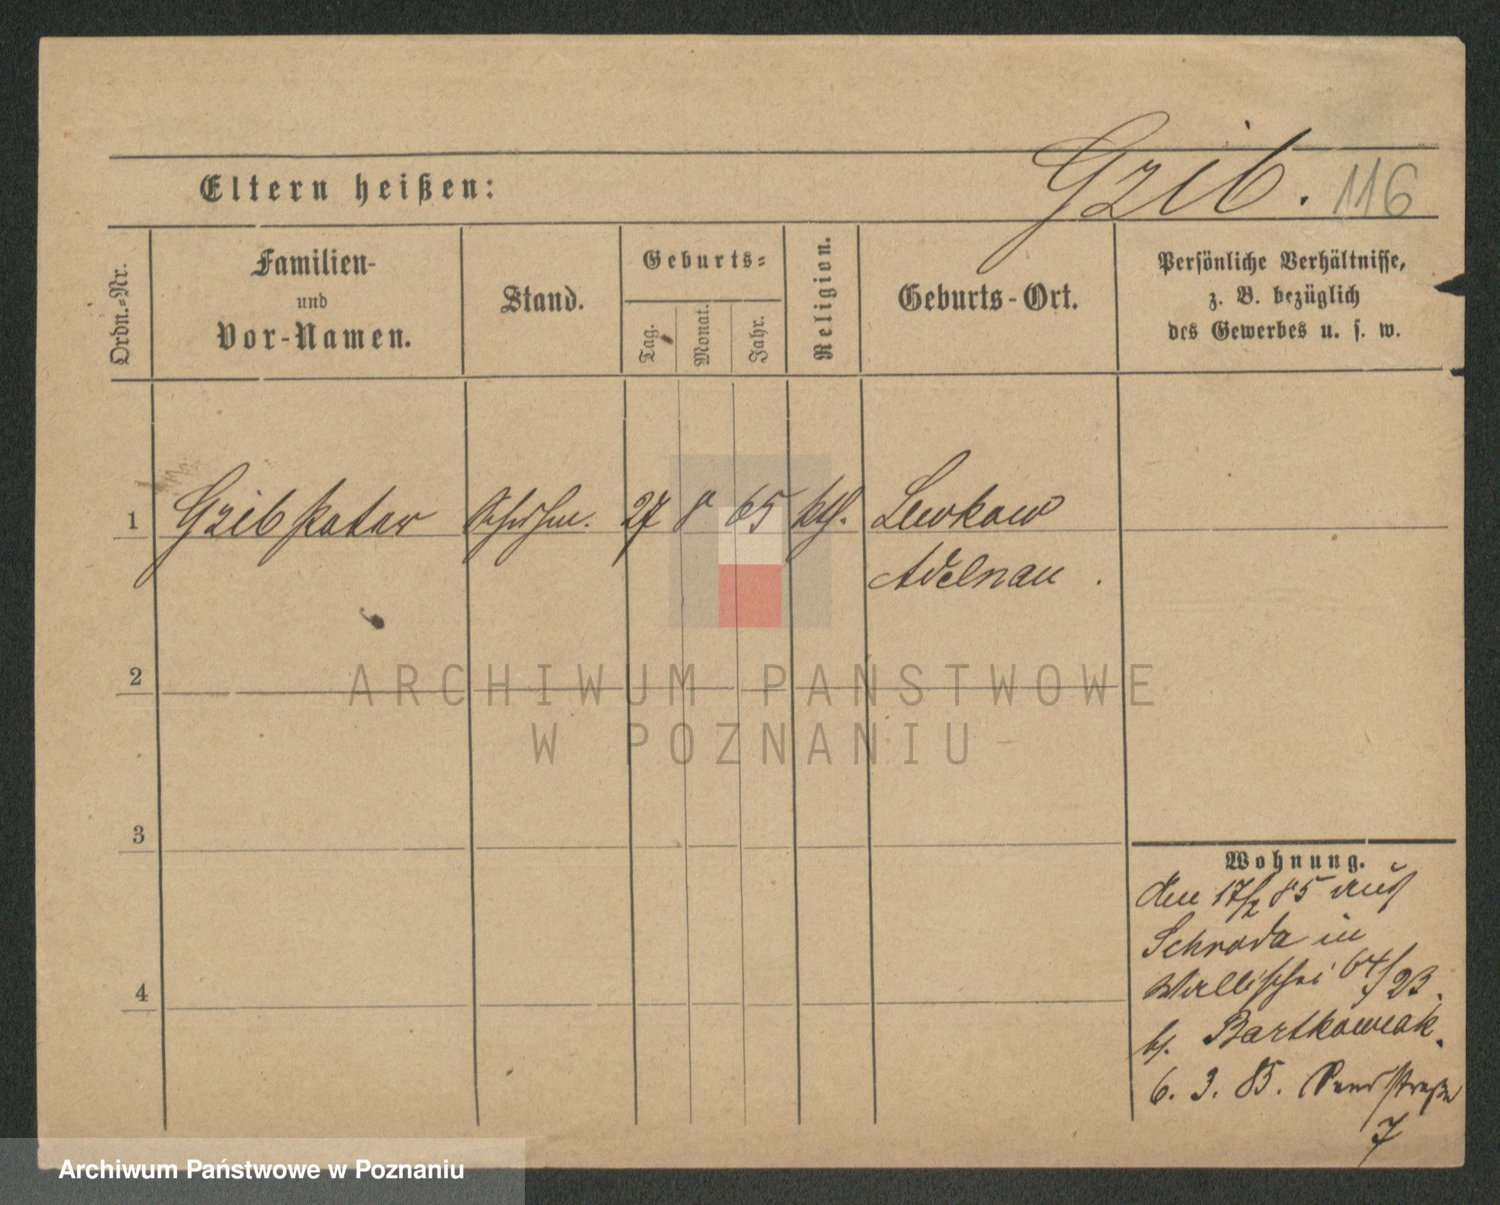 Gzib. 116
Eltern heißen:
Ordn.-Nr.
Familien-
und
Vor-Namen.
Stand.
Geburts-
Tag.
Monat.
Jahr.
Religion.
Geburts-Ort.
Persönliche Verhältnisse,
z. B. bezüglich
des Gewerbes u. s. w.
1 Gzib Peter 27 8 65 kth. Lewkow
Adelnau.
2
3
4
Wohnung.
den 17/2 85 aus
Schroda in
Wallischei 64/23.
b. Bartkowiak.
6. 3. 85.
7
ARCHIWUM PAŃSTWOWE
W POZNANIU
Archiwum Państwowe w Poznaniu